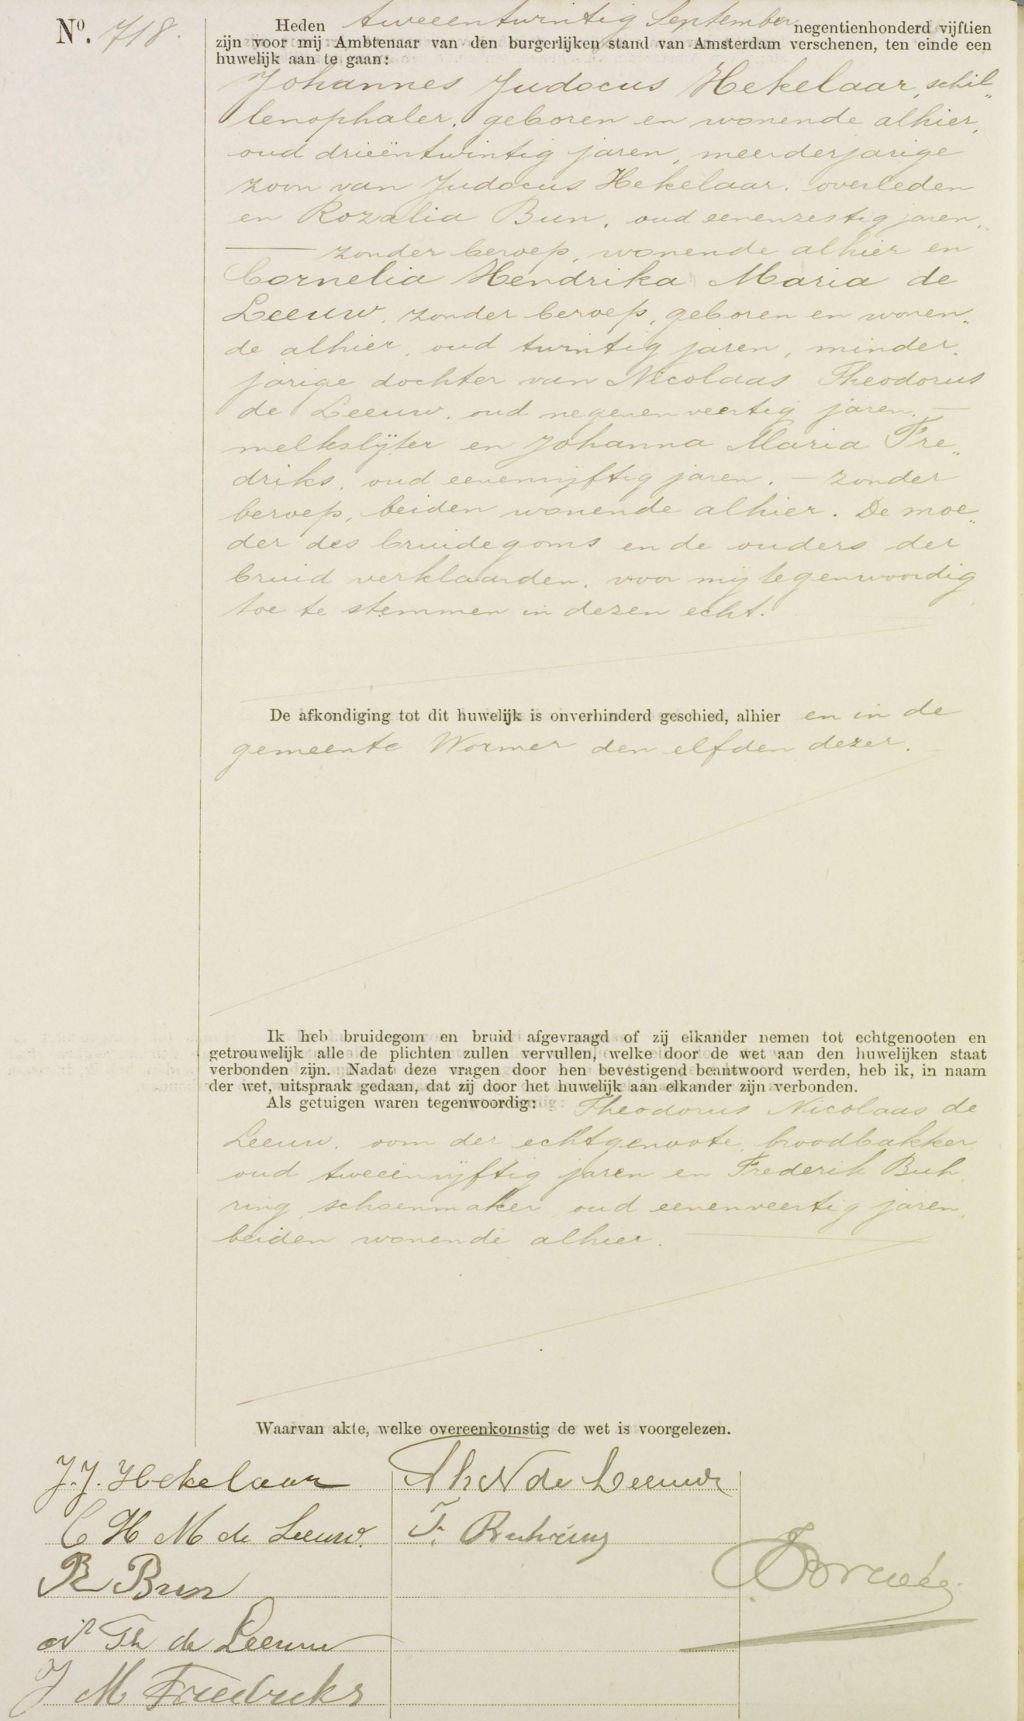 No. 718.
Heden tweeentwintig September negentienhonderd vijftien
zijn voor mij Ambtenaar van den burgerlijken stand van Amsterdam verschenen, ten einde een
huwelijk aan te gaan:
Johannes Judocus Hekelaar, schil„
lenophaler, geboren en wonende alhier,
oud drieëntwintig jaren, meerderjarige
zoon van Judocus Hekelaar, overleden
en Rozalia Bun, oud eenenzestig jaren,
zonder beroep, wonende alhier en
Cornelia Hendrika Maria de
Leeuw, zonder beroep, geboren en wonen„
de alhier, oud twintig jaren, minder„
jarige dochter van Nicolaas Theodorus
de Leeuw, oud negenenveertig jaren, —
melkslijter en Johanna Maria Fre„
driks, oud eenenvijftig jaren, — zonder
beroep, beiden wonende alhier. De moe„
der des bruidegoms en de ouders der
bruid verklaarden, voor mij tegenwoordig
toe te stemmen in dezen echt.
De afkondiging tot dit huwelijk is onverhinderd geschied, alhier en in de
gemeente Wormer den elfden dezer.
Ik heb bruidegom en bruid afgevraagd of zij elkander nemen tot echtgenooten en
getrouwelijk alle de plichten zullen vervullen, welke door de wet aan den huwelijken staat
verbonden zijn. Nadat deze vragen door hen bevestigend beantwoord werden, heb ik, in naam
der wet, uitspraak gedaan, dat zij door het huwelijk aan elkander zijn verbonden.
Als getuigen waren tegenwoordig: Theodorus Nicolaas de
Leeuw, oom der echtgenoote, broodbakker
oud tweeënvijftig jaren en Frederik Buh„
ring, schoenmaker, oud eenenveertig jaren,
beiden wonende alhier.
Waarvan akte, welke overeenkomstig de wet is voorgelezen.
J. J. Hekelaar
Th N de Leeuw
C H M de Leeuw.
F. Buhring
R Bun
Th de Leeuw
J M Fredriks